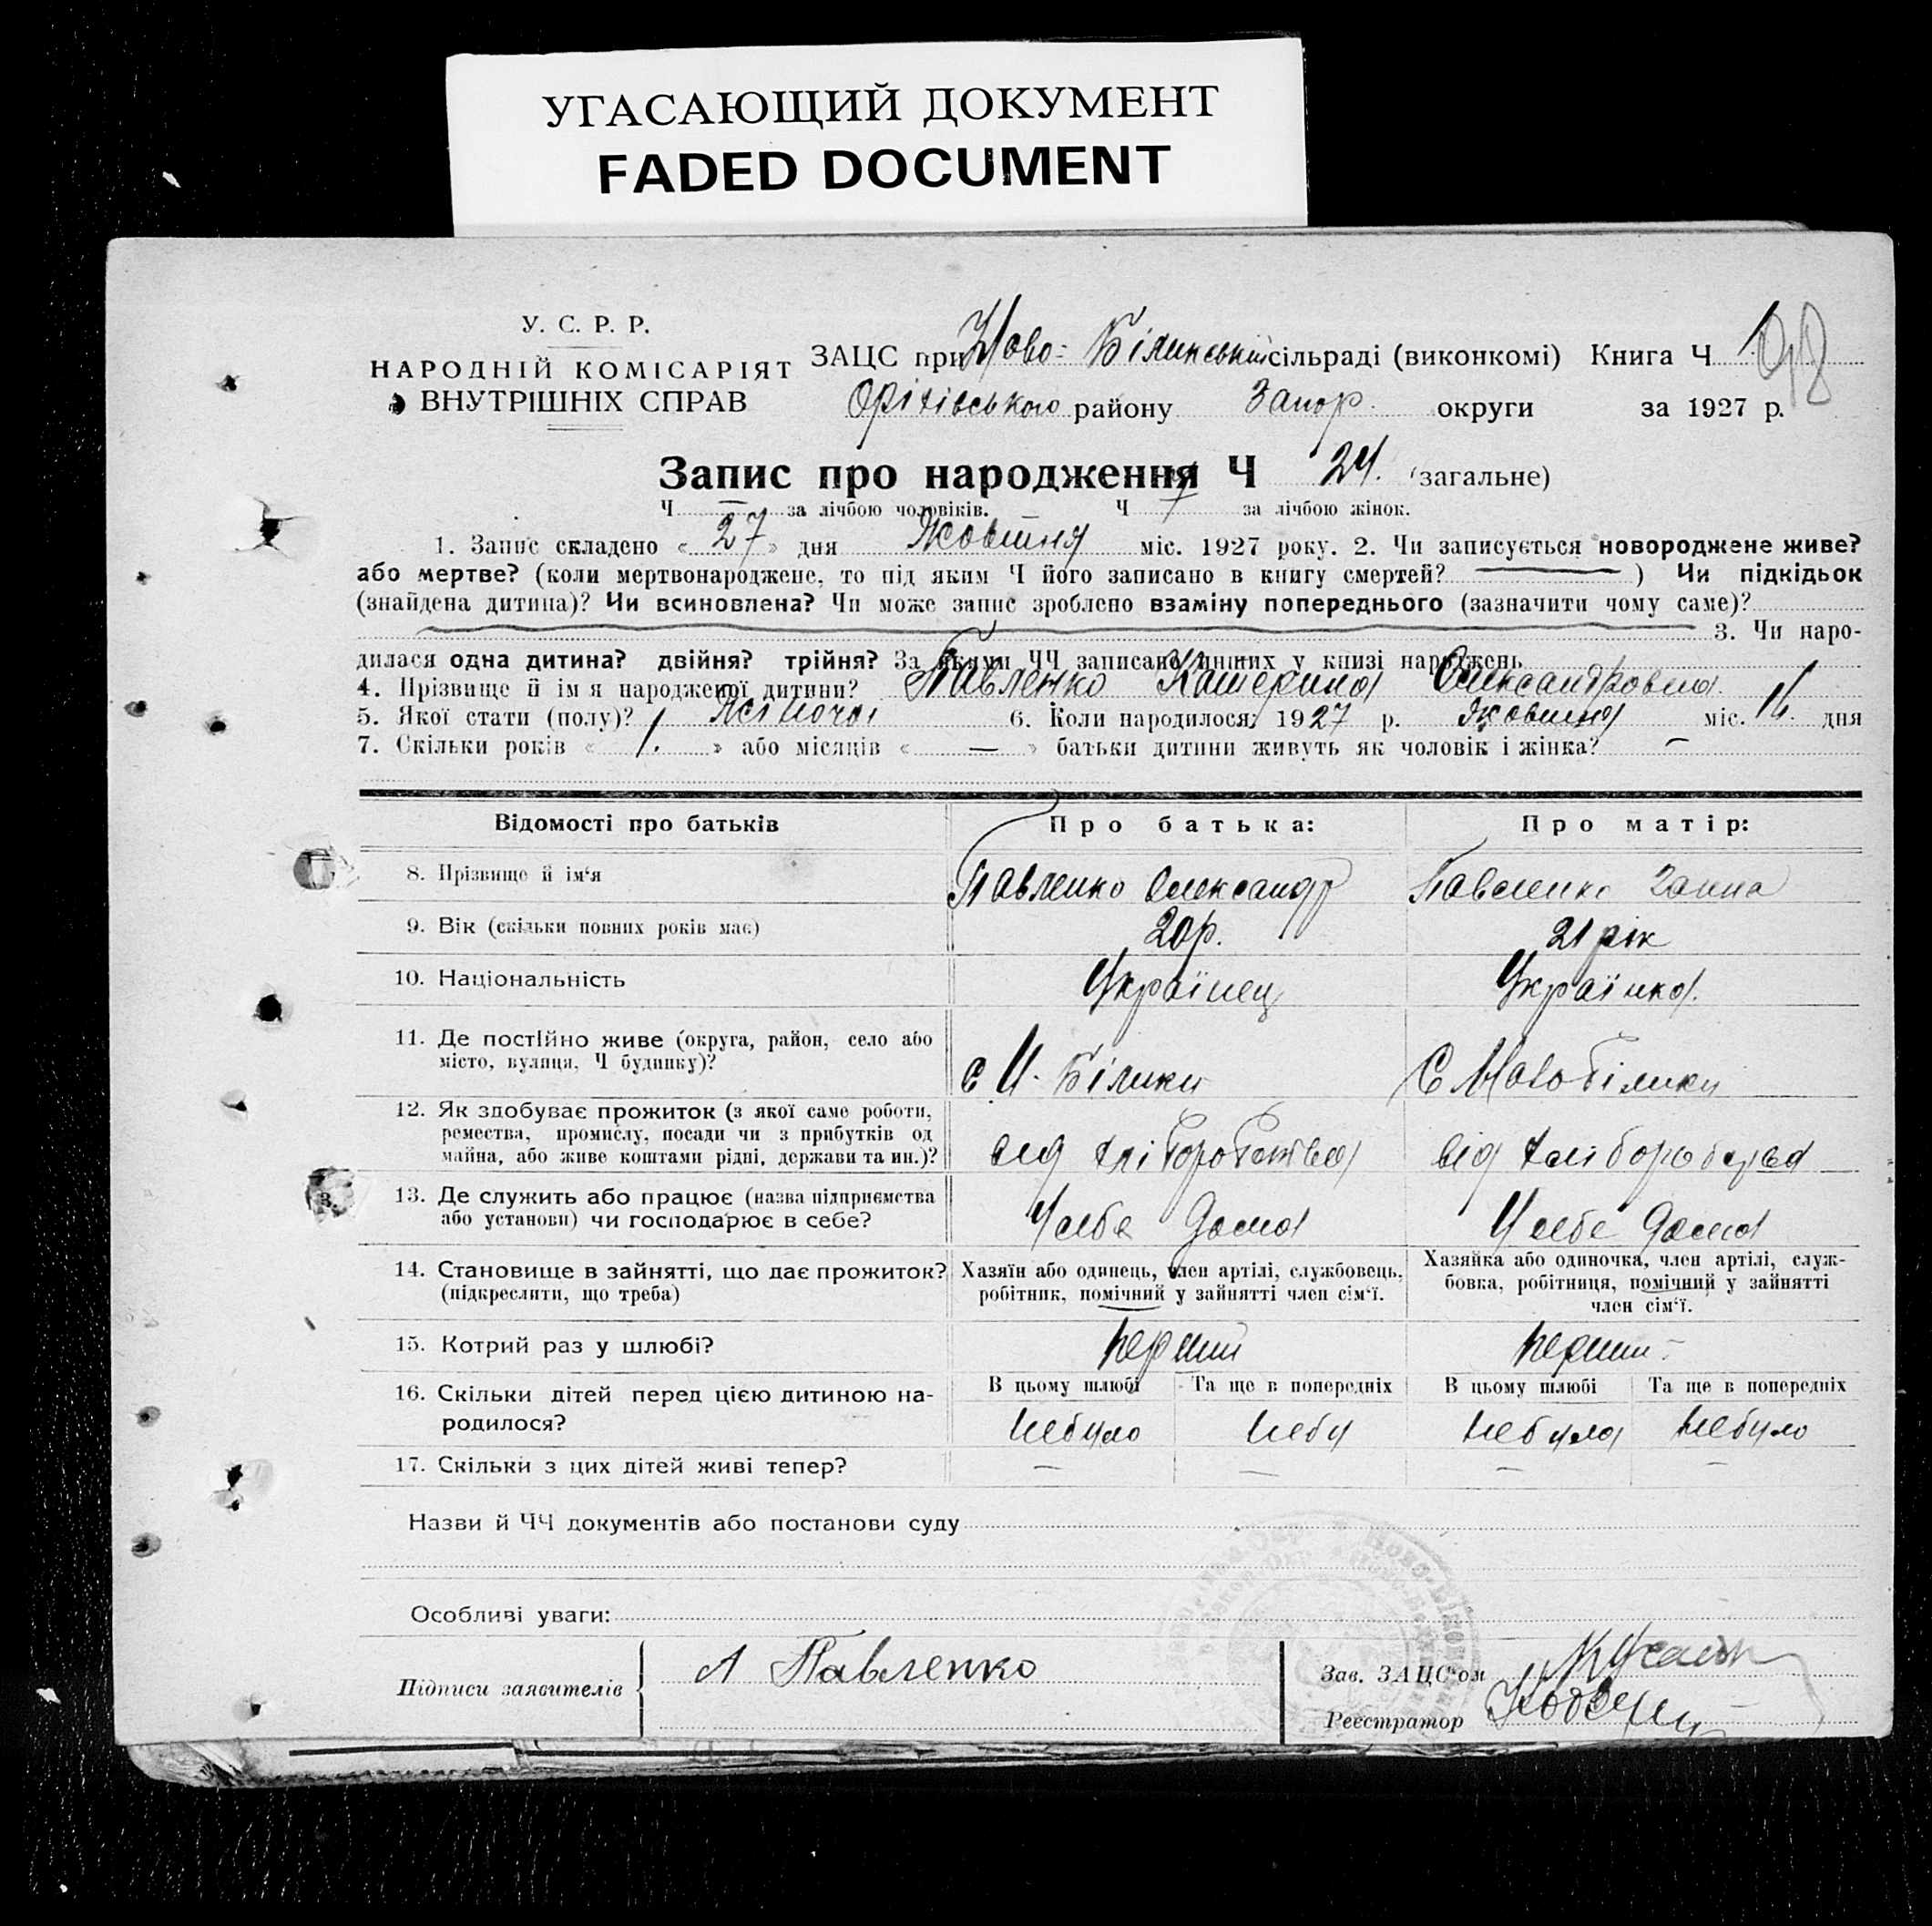 УГАСАЮЩИЙ ДОКУМЕНТ
FADED DOCUMENT
У. С. Р. Р.
НАРОДНІЙ КОМІСАРІЯТ
ВНУТРІШНІХ СПРАВ
ЗАЦС при Ново-Біликській сільраді (виконкомі) Книга Ч 1
98
Оріхівського району Запор. округи за 1927 р.
Запис про народження Ч 24. (загальне)
Ч — за лічбою чоловіків. Ч 7 за лічбою жінок.
1. Запис складено « 27 » дня Жовтня міс. 1927 року. 2. Чи записується новороджене живе?
або мертве? (коли мертвонароджене, то під яким Ч його записано в книгу смертей? — ) Чи підкідьок
(знайдена дитина)? Чи всиновлена? Чи може запис зроблено взаміну попереднього (зазначити чому саме)?
3. Чи наро-
дилася одна дитина? двійня? трійня? За якими ЧЧ записано инших у книзі народжень
4. Прізвище й ім я народженої дитини? Павленко Катерина Олександровна
5. Якої стати (полу)? Жіноча 6. Коли народилося: 1927 р. жовтня міс. дня
7. Скільки років « 1. » або місяців « — » батьки дитини живуть як чоловік і жінка? —
Відомості про батьків Про батька: Про матір:
8. Прізвище й ім‘я Павленко Олександр Павленко Ганна
9. Вік (скільки повних років має) 20р. 21 рік
10. Національність Українец Українка.
11. Де постійно живе (округа, район, село або
місто, вулиця, Ч будинку)? с Н. Білики С Ново Білики
12. Як здобуває прожиток (з якої саме роботи,
ремества, промислу, посади чи з прибутків од
майна, або живе коштами рідні, держави та ин.)? від хліборобства від хліборобства
13. Де служить або працює (назва підприємства
або установи) чи господарює в себе? У себе дома У себе дома
14. Становище в зайнятті, що дає прожиток?
(підкреслити, що треба)
Хазяїн або одинець, член артілі, службовець,
робітник, помічний у зайнятті член сім‘ї.
Хазяйка або одиночка, член артілі, служ-
бовка, робітниця, помічний у зайнятті
член сім‘ї.
15. Котрий раз у шлюбі? перший перший
16. Скільки дітей перед цією дитиною на-
родилося?
В цьому шлюбі Та ще в попередніх В цьому шлюбі Та ще в попередніх
небуло небу небула небуло
17. Скільки з цих дітей живі тепер? — — — —
Назви й ЧЧ документів або постанови суду
Особливі уваги:
Підписи заявителів А Павленко
Зав. ЗАЦС‘ом
Реєстратор